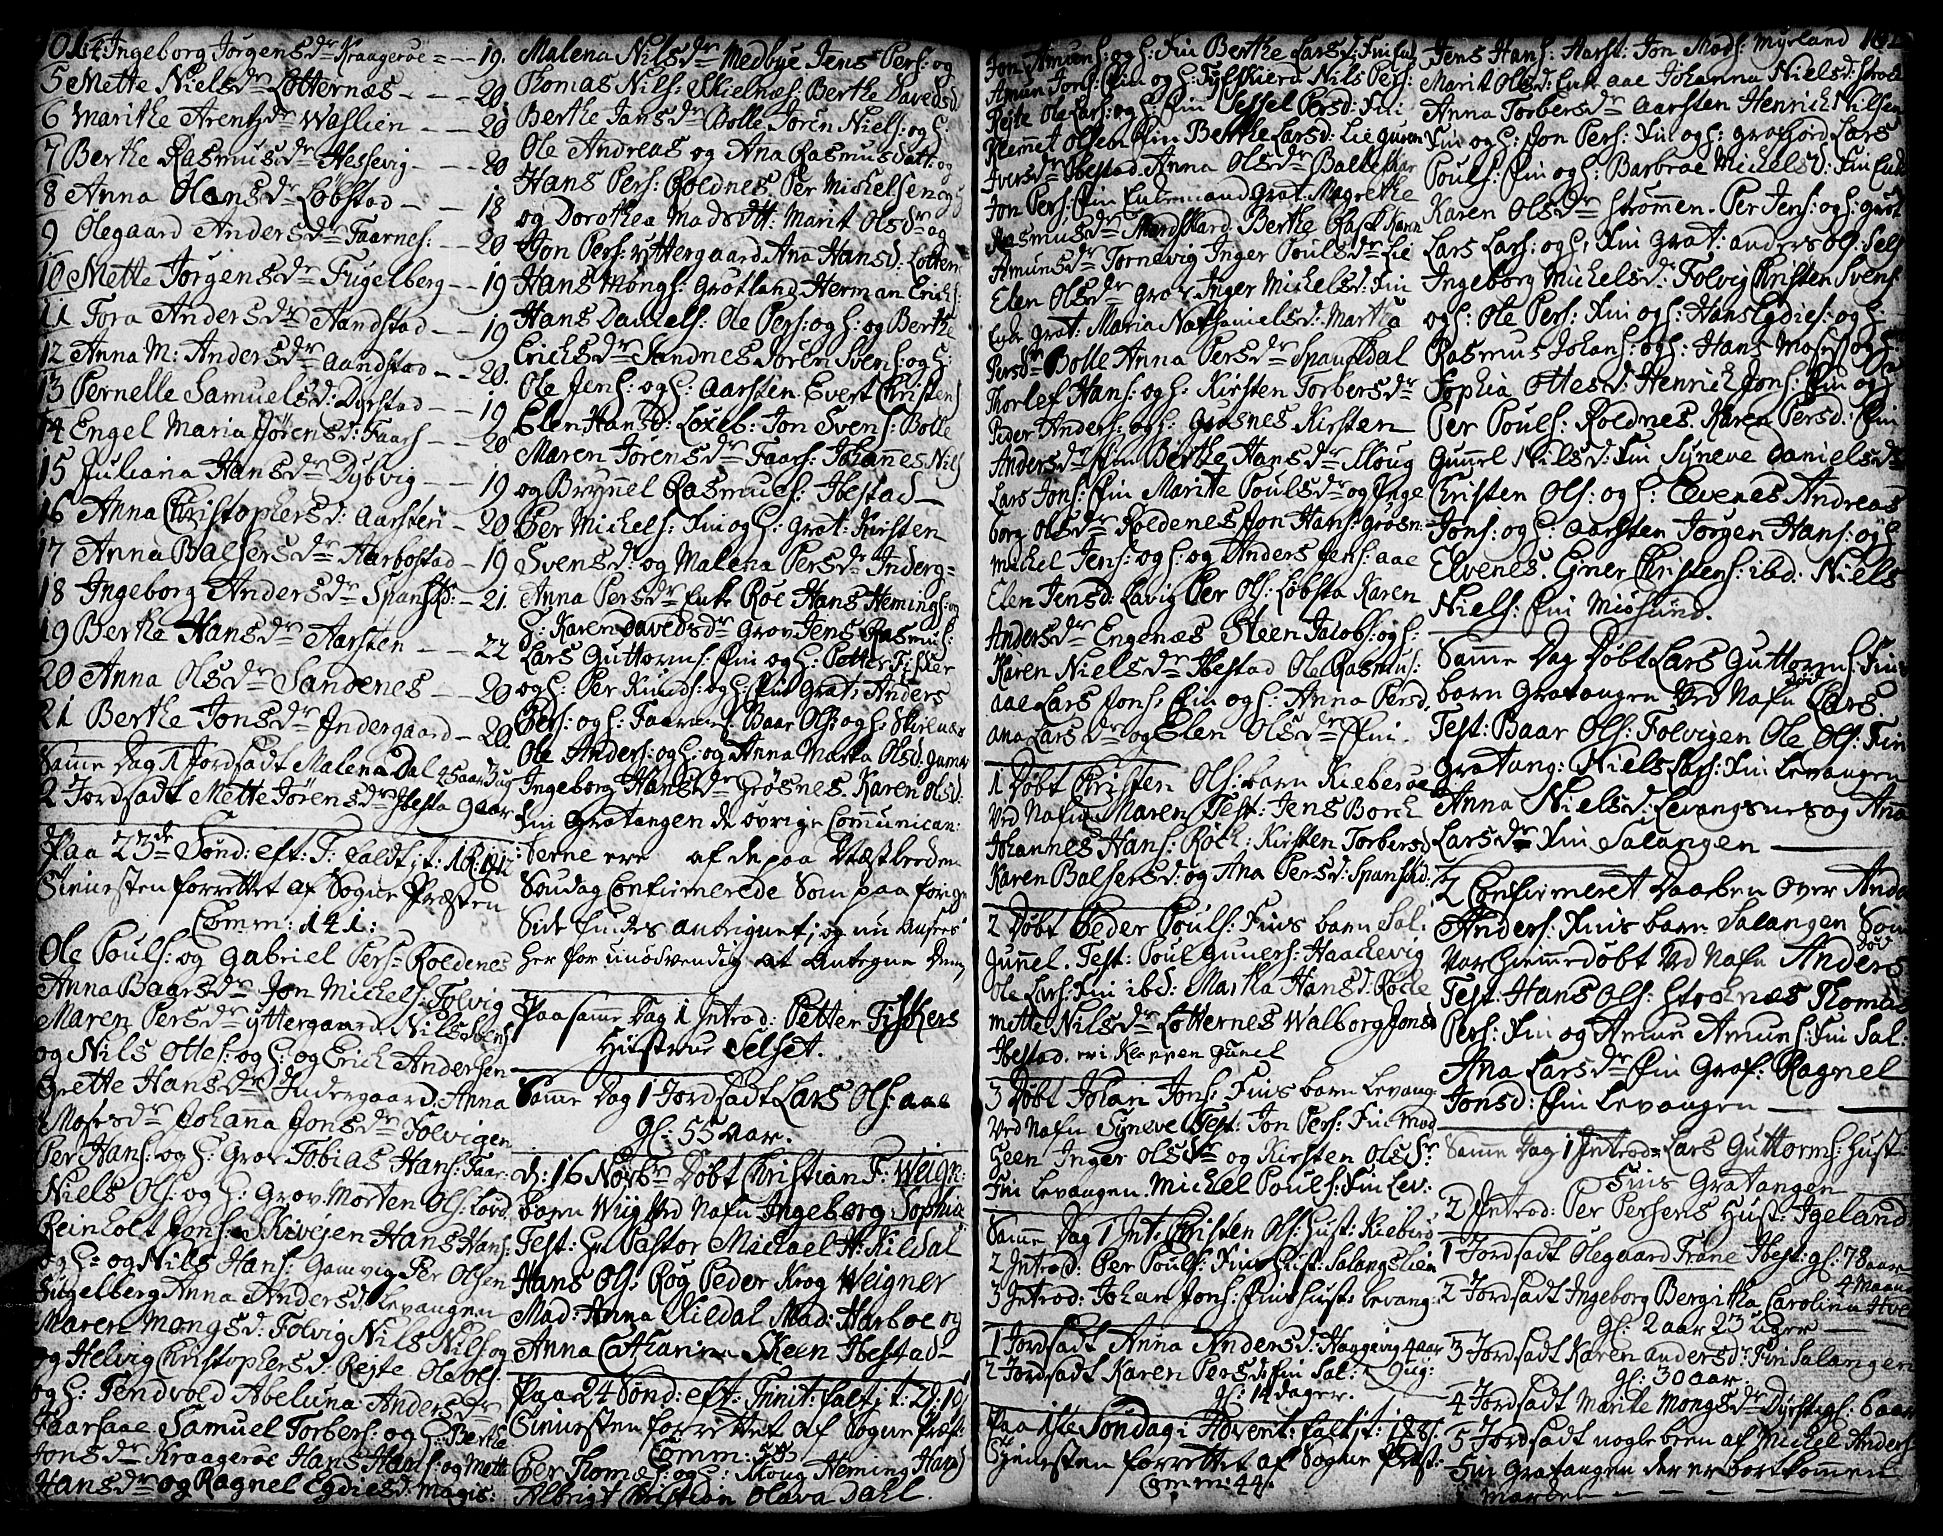 4 Ingeborg Jörgensdr Kraagerøe = - 19.
5 Mette Nielsdr Løtternæs - - - 20
6 Marithe Arentzdr Wasliën - - 20
7 Berthe Rasmusdr Hessevig - - - 20
8 Anna Hansdr Löbstad - - 18
9 Olegaard Andersdr Faarnes: - - 20
10 Mette Jörgensdr Fugelberg - - 19
11 Tora Andersdr Aandstad - - 19
12 Anna M: Andersdr Aandstad - - 20.
13 Pernelle Samuelsd: Dyrstad - - 19
14 Engel Maria Jörensd: Faarh - - 20
15 Juliana Hansdr Dybvig - - 19
16 Anna Christophersd: Aarsten - 20
17 Anna Balsersdr Aarbostad - 19
18 Ingeborg Andersdr Spansd: - 21.
19 Berthe Hansdr Aarsten - - 22
20 Anna Olsdr Sandenes - - 20
21 Berthe Jonsdr Indergaard - 20
Samme Dag 1 Jordsadt Malena Dal 45 aar 3 ug
2 Jordsadt Mette Jörensdr Ibesta 9 aar
Paa 23de Sønd: eft: T: faldt i t:
Tienesten forrettet af Sogne Præsten
Comm: 141:
Ole Pouls: og Gabriel Pers: Roldenes
Anna Baarsdr Jon Michels: Folvig
Maren Persdr Yttergaard Nils Jens:
og Nils Ottes: og H: og Erich Andersen
Grette Hansdr Indergaard: Anna
Mosesdr Johanna Jonsdr Folvigen
Per Hans: og H: Grov Tobias Hans: Faar:
Niels Ols: og H: Grov. Morten Ols: Lövd:
Reinholt Jens: Skivejen Hans Hans:
og H: og Nils Hans: Gamvig Per Olsen
Fugelberg Anna Andersd: Levangen
Maren Mongsd: Folvig Nils Nils: og
og Helvig Christophersd: Rejte Ole Ols:
og H: Tendvold Abeluna Andersdr
Faarsaae Samuel Torbers: og H: Berthe
Jonsdr Kraagerøe Hans Hans: og Mette
Hansdr og Ragnel Egdiesd: Magis:
Malena Nilsdr Medbye Jens Pers: og
Thomas Nils: Skielnæs: Berthe Davedsd
Berthe Jansdr Bolle Jören Niels: og H:
Ole Andreas og Ana Rasmusdatt: og
Hans Pers: Roldnes Per Michelsen og H
og Dorothea Madsdtt: Marit Olsdr og
Jon Pers: Yttergaard Ana Hansd: Løttern
Hans Mongs: Grøtland Herman Erichs:
Hans Daniels: Ole Pers: og H: og Berthe
Erichsdr Sandnes Jören Svens: og H:
Ole Jens: og H: Aarsten. Evert Christens
Elen Hansd: Løxeb: Jon Svens: Bolle
Maren Jörensdr Faarh: Johannes Nils
og Brynnel Rasmus: Ibestad -
Per Michels: Fin og H: Grat: Kirsten
Svensd: og Malena Persdr Inderg=
Anna Persdr Enke Röe Hans Hemings: og
H: Karen Davedsdr Grov Jens Rasmus:
Lars Guttorms: Fin og H: Petter Fisker
og H: Per Knuds: og H: Fin Grat: Anders
Pers: og H: Faarnes: Baar Ols: og H: Skielnæs
Ole Anders: og H: og Anna Marta Olsd: Gamv
Ingeborg Hansdr Grøsnes. Karen Olsd:
Fin Gratangen de øvrige Communican:
terne ere af de paa næstleeden
Søndag Confirmerede Som paa forige
Side findes antegnet; og nu ansees
her for unødvendig at antegne dem
Paa samme Dag 1 Introd: Petter Fiskers
Hustrue Selset.
Samme Dag 1 Jordsadt Lars Ols: aae
gl: 55 aar.
d: 16 Novbr Døbt Christian F: Weign:
barn Wiig Ved Nafn Ingeborg Sophia
Test: Hr Pastor Michael H: Kildal
Hans Ols: Røg Peder Krog Weigner
Mad: Anna Kildal Mad: Harboe og
Anna Catharina Skeen Ibestad -
Paa 24 Sønd: eft: Trinit: falt i t:
Tienesten forrettet af Sogne Præst:
Comm: 58:
Per Thomæs: og H: Moug Heming Hans
Albrigt Christian Olava Dahl.
Jon Amuns: og H: Fin Berthe Larsd: Fin
Amun Jons: Fin og H: Fylskierd Nils Pers:
Rejte Ole Lars: og H: Fin Sessel Persd: Fin:
Klemmet Olsen Fin Berthe Larsd: Lie Guren
Iversdr Ibestad Anna Olsdr Balteskar
Jon Pers: Fin Enkemand Grat: Magrethe
Rasmusdr Mardskard. Berthe Rask Karen
Amunsdr Tornevig Inger Poulsdr Lie
Elen Olsdr Grov Inger Michelsd: Fin
Enke Grat: Maria Nathanielsd: Martha
Persdr Bolle Anna Persdr Spansdal
Thorlef Hans: og H: Kirsten Torbersdr
Peder Anders: og H: Grøsnes Kirsten
Andersdr Fin Berthe Hansdr Moug
Lars Jons: Fin Marite Poulsdr og Inge
borg Olsdr Roldenes Jon Hans: Grøsn:
Michel Jens: og H: og Anders Jens: aae
Elen Jensd: Lavig Per Ols: Løbsta Karen
Andersdr Engenæs Steen Jacobs: og H:
Karen Nielsdr Ibestad Ole Rasmus:
aae Lars Jons: Fin og H: Anna Persd,
Ana Larsdr og Elen Olsdr Fin.
1 Døbt Christen Ols: barn Kieberøe
Ved Nafn Maren Test: Jens Borch
Johannes Hans: Røch: Kirsten Torbersd
Karen Balsersd: og Ana Persd: Spansdd:
2 Døbt Peder Pouls: Fins barn Sal:
Gunnel. Test: Poul Guners: Haachevig
Ole Lars: Fin ibd: Martha Hansd: Rølle
Mette Nilsdr Løtternes Walborg Jonsd
Ibestad.
3 Døbt Johan Jons: Fins barn Levang:
Ved Nafn Syneve Test: Jon Pers: Fin Mod
Geen Inger Olsdr og Kirsten Olsdr
Fin Levangen. Michel Pouls: Fin Lev:
Samme Dag 1 Int: Christen Ols: Hust: Kieberø
2 Introd: Per Pouls: Fins Hust: Salangslien
3 Introd: Johan Jons: Fins Hust: Levang:
1 Jordsadt Anna Andersd: Haggevig 4 aar
2 Jordsadt Karen Persd: Fin Sal:
gl: 14 dager.
Paa 1ste Søndag i Advent: falt i t:
Tienesten forrettet af Sogne Præst:
Comm: 44:
Jens Hans: Aarst: Jon Mads: Myrland
Marit Olsd: Enke aae Johanna Nielsd: Strokn
Anna Torbersdr Aarsten Henrich Nilsen
Fin og H: Jon Pers: Fin og H: Gratfiord Lars
Pouls: Fin og H: Barbroe Michelsd: Fin Enke
Karen Olsdr Strømmen. Per Jens: og H: Grøt
Lars Lars: og H: Fin Grat: Anders Ols: Sels
Ingeborg Michelsd: Folvig Christen Svens
og H: Ole Pers: Fin og H: Hans Egdies: og H:
Rasmus Johans: og H: Hans Moses: og H:
Sophia Ottesd: Henrich Jons: Fin og H
Per Pouls: Roldnes. Karen Persd: Fin
Gunnel Nilsd: Fin Syneve Danielsdr
Christen Ols: og H: Elvenes Andreas
Jons: og H: Aarsten Jörgen Hans: og H
Elvenes. Gner Christens: ibd: Niels
Niels: Fin Miøsund.
Samme Dag Døbt Lars Guttorms: Fins
barn Gratangen Ved Nafn Lars. død
Test: Baar Ols: Folvigen Ole Ols: Fin
Gratang: Niels Lars: Fin Levangen
Anna Nielsd: Levangsnes og Ana
Larsdr Fin Salangen
2 Confirmeret Daaben over Anders
Anders: Fins barn Salangen Som
Var hiemmedøbt Ved Nafn Anders død
Test: Hans Ols: Stroknæs Thomas
Pers: Fin og Amun Amuns: Fin Sal:
Ana Larsdr Fin Grat: Ragnel
Jonsd: Fin Levangen
Samme Dag 1 Introd: Lars Guttorms: Hust:
Fins Gratangen
2 Introd: Per Persens Hust: Igeland
1 Jordsadt Olegaard Frane Ibest: gl: 78 aar
4 Maan
2 Jordsadt Ingeborg Bergitha Carolina Hve
gl: 2 aar 23 uger
3 Jordsadt Karen Andersdr Fin Salangen
gl: 30 aar.
4 Jordsadt Marite Mongsdr Dyrsta gl: 6 aar
5 Jordsadt nogle been af Michel Anders
Fin Gratangen der er bortkommen